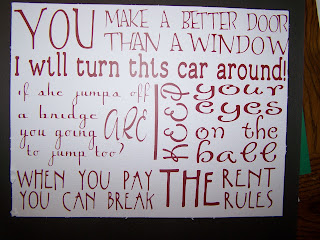 YOU MAKE A BETTER DOOR
THAN A WINDOW
I will turn this car around!
if she jumps off
a bridge ARE
you going
to jump too?
KEEP your
eyes
on the
ball
WHEN YOU PAY THE RENT
YOU CAN BREAK THE RULES